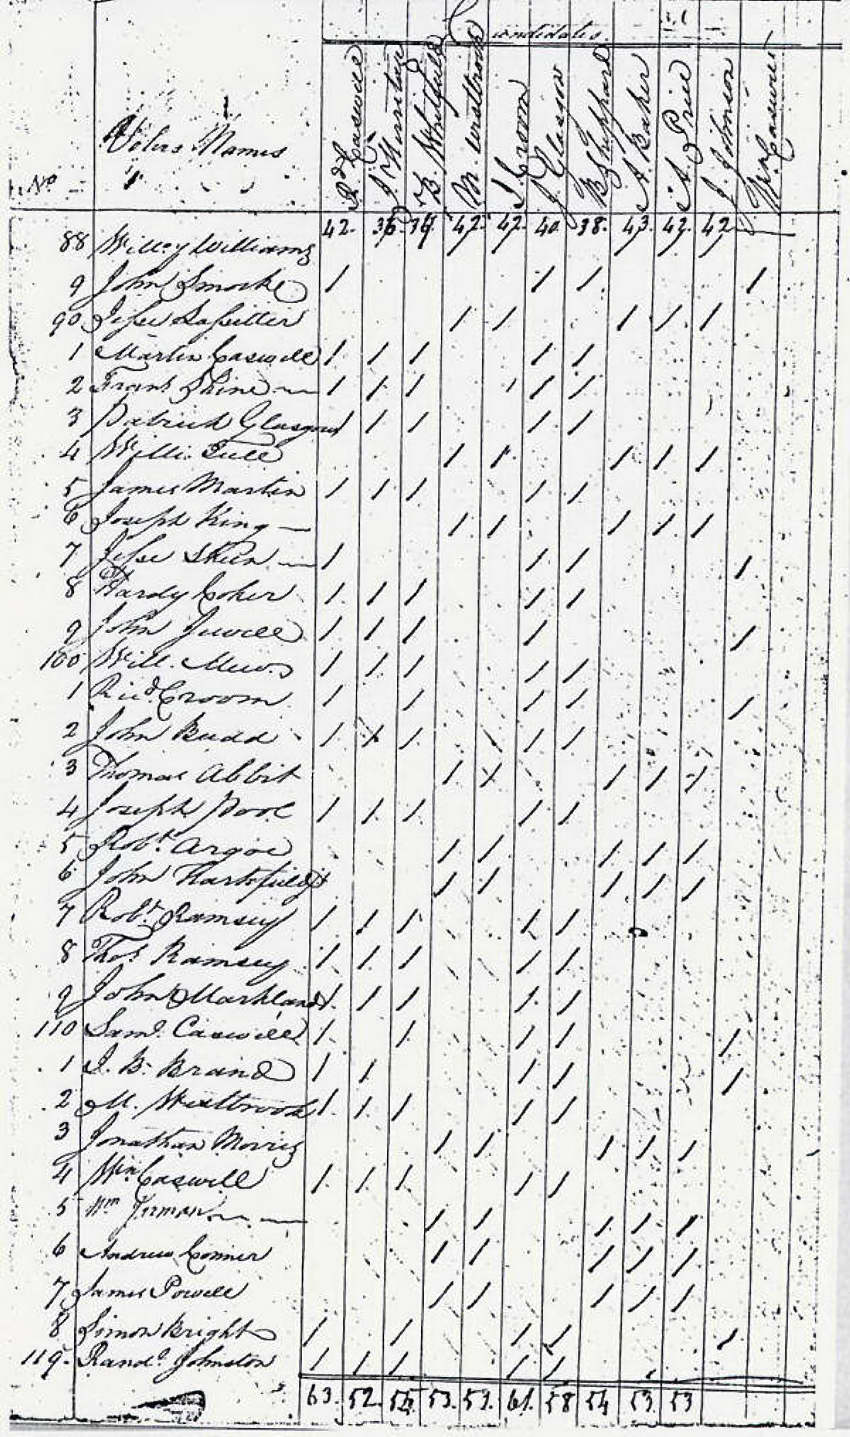 Candidates
No Voters Names Rd Caswell J Herritage B. Whitfield M. Westbrook J Croom J Glasgow B Sheppard A Baker A Price J Johnson Wm Caswell
42. 36. 42. 42. 40. 38. 43. 42. 42
88 Willey Williams / / / / /
9 John Smock / / / /
90 Jesse Lassitter / / / / /
1 Martin Caswell / / / / /
2 Frans Shine / / / / /
3 Patrick Glasgow / / / / /
4 Willi. Tull / / / / /
5 James Martin / / / / /
6 Joseph King / / / / /
7 Jesse / / / /
8 Hardy Coker / / / / /
9 John Jewell / / / / /
100 Will. Mews / / / / /
1 Ricd. Croom / / / / /
2 John Budd / / / / /
3 Thomas Abbit / / / / /
4 Joseph Pool / / / / /
5 Robt. Argoe / / / / /
6 John Hartsfield / / / / /
7 Robt. Ramsey / / / / /
8 Thos. Ramsey / / / / /
9 John Markland / / / / /
110 Saml. Caswell / / / / /
1 J. B. Brand / / / / /
2 M. Westbrook / / / / /
3 Jonathan Morris / / / / /
4 Wm Caswell / / / / /
5 Wm / / / / /
6 Andrew Conner / / / / /
7 James Powell / / / / /
8 Simon Bright / / / / /
119. Randl. Johnston / / / / /
63. 52. 53. 61. 58 54 53 53